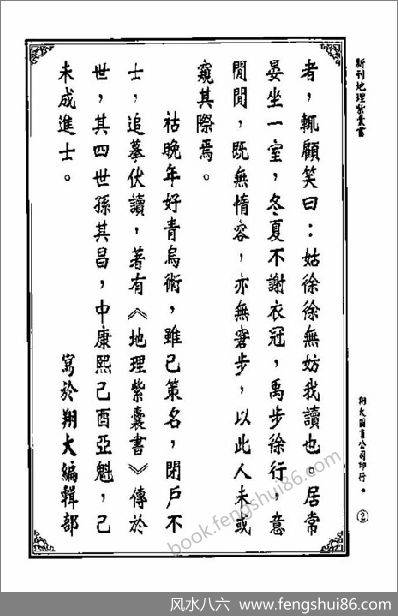 新刊地理紫囊書
者，輒顧笑曰：姑徐徐無妨我讀也。居常
晏坐一室，冬夏不謝衣冠，禹步徐行，意
閒閒，既無惰容，亦無窘步，以此人未或
窺其際焉。
祜晚年好青烏術，雖已策名，閉戶不
士，追摹伏讀，著有《地理紫囊書》傳於
世，其四世孫其昌，中康熙己酉亞魁，己
未成進士。
寫於翔大編輯部
翔大圖書公司印行。
book.fengshui86.com
风水八六 → www.fengshui86.com